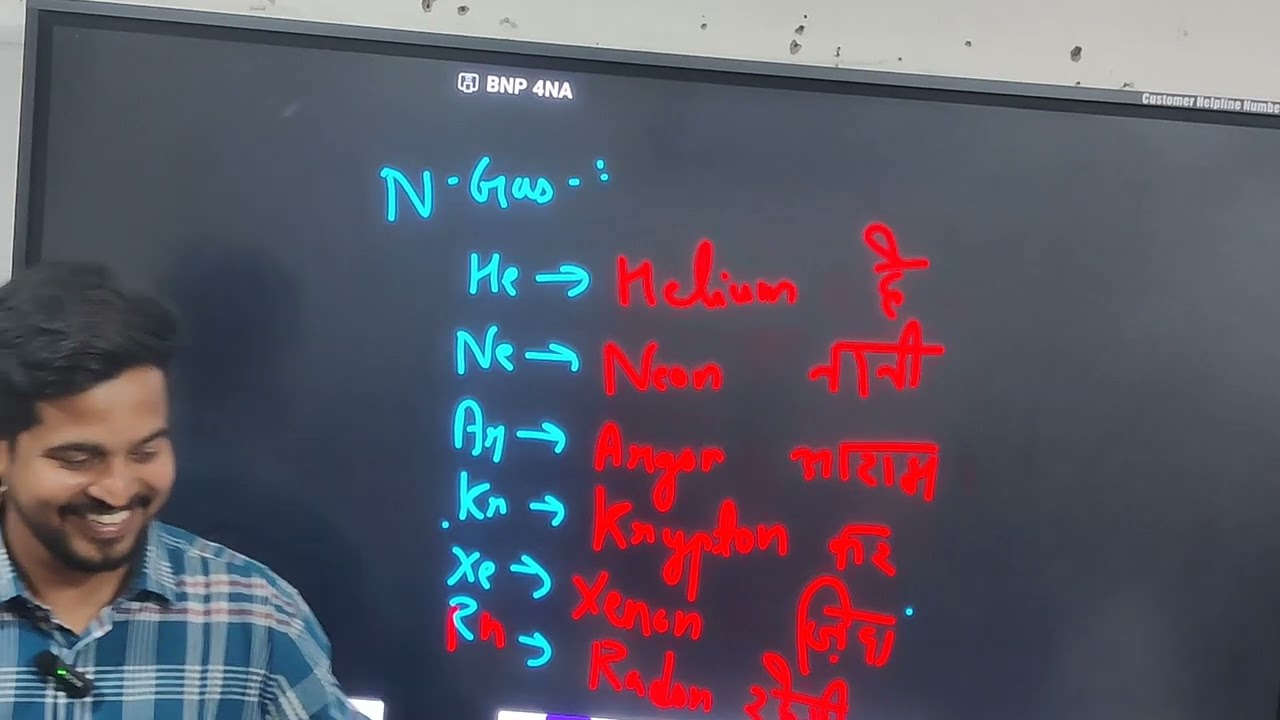 BNP 4NA
Customer Helpline Numbe
N-Gas-:
He → Helium हे
Ne → Neon नानी
Ar → Argon आराम
Kr → Krypton कर
Xe → Xenon
Rn → Radon